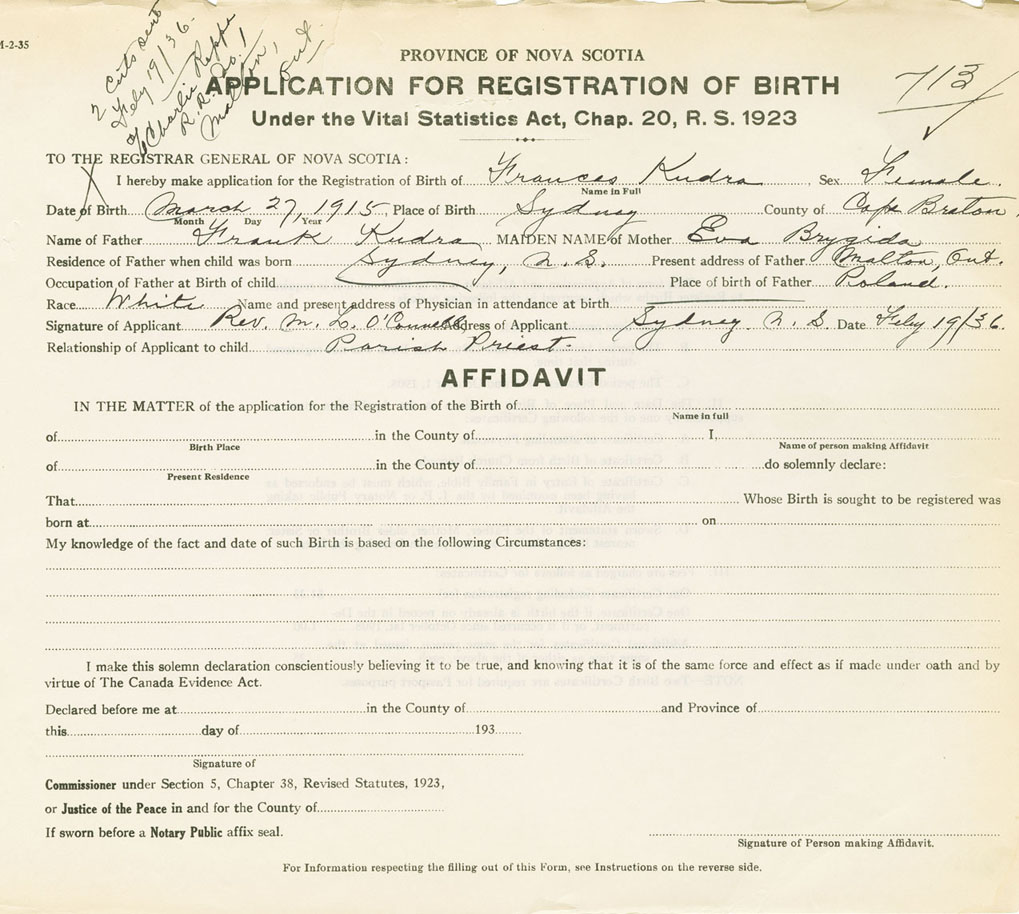 M-2-35
2 certs sent
Feby 19/36.
% Charlie Reppa
R. R. No. 1
Malton,
Ont.
PROVINCE OF NOVA SCOTIA
APPLICATION FOR REGISTRATION OF BIRTH
713
Under the Vital Statistics Act, Chap. 20, R. S. 1923
TO THE REGISTRAR GENERAL OF NOVA SCOTIA:
I hereby make application for the Registration of Birth of Frances Kudra, Sex Female.
Name in Full
Date of Birth March 27, 1915, Place of Birth Sydney County of Cape Breton.
Month Day Year
Name of Father Frank Kudra, MAIDEN NAME of Mother Eva Brygida
Residence of Father when child was born Sydney, N. S. Present address of Father Malton, Ont.
Occupation of Father at Birth of child Place of birth of Father Poland.
Race White Name and present address of Physician in attendance at birth
Signature of Applicant Rev. M. L. O'Connell Address of Applicant Sydney N. S. Date Feby 19/36.
Relationship of Applicant to child Parish Priest.
AFFIDAVIT
IN THE MATTER of the application for the Registration of the Birth of
Name in full
of in the County of I,
Birth Place Name of person making Affidavit
of in the County of do solemnly declare:
Present Residence
That Whose Birth is sought to be registered was
born at on
My knowledge of the fact and date of such Birth is based on the following Circumstances:
I make this solemn declaration conscientiously believing it to be true, and knowing that it is of the same force and effect as if made under oath and by
virtue of The Canada Evidence Act.
Declared before me at in the County of and Province of
this day of 193
Signature of
Commissioner under Section 5, Chapter 38, Revised Statutes, 1923,
or Justice of the Peace in and for the County of
If sworn before a Notary Public affix seal.
Signature of Person making Affidavit.
For Information respecting the filling out of this Form, see Instructions on the reverse side.